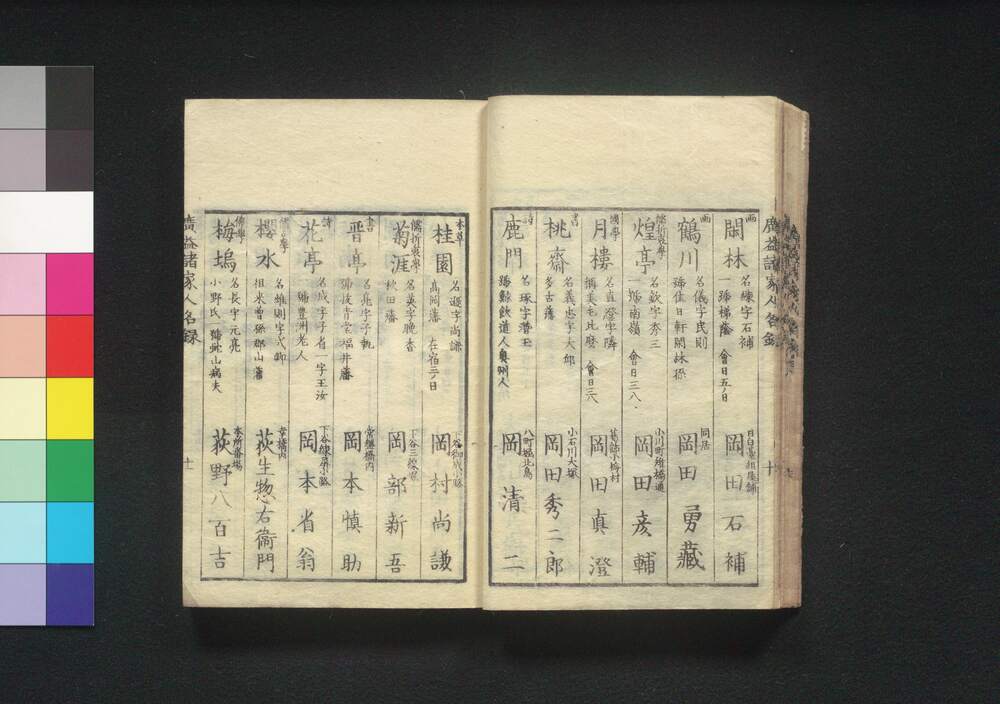 廣益諸家人名録
画
閑林
名練字石補
一號梯蔭 會日五ノ日
岡田石補
画
鶴川
名儀字民則
號隹日軒閑林孫
同居
岡田勇藏
儒折衷學
煌亭
名欽字秀三
一號南嶺 會日三八
小川町雉橋通
岡田彦輔
國學
月樓
名直澄字隣
稱美乞比麿 會日三八
岡田真澄
書
桃齋
名義忠字大郎
多古藩
小石川大塚
岡田秀二郎
詩
鹿門
名琢字潛玉
號鯨飲道人奥州人
八町堀北島
岡清二
十
本草
桂園
名遜字尚謙
髙岡藩 在宿三ノ日
岡村尚謙
儒折衷學
菊涯
名英字晩香
秋田藩
下谷三線堀
岡部新吾
書
晋亭
名亮字子執
號披青堂福井藩
常盤橋内
岡本慎助
詩
花亭
名成字子省一字王汝
號豊洲老人
岡本省翁
櫻水
名雄則字式卿
徂來曽孫郡山藩
幸橋内
荻生惣右衞門
儒學
梅塢
名長字元亮
小野氏 號蛇山病夫
本所番場
荻野八百吉
廣益諸家人名録
十一